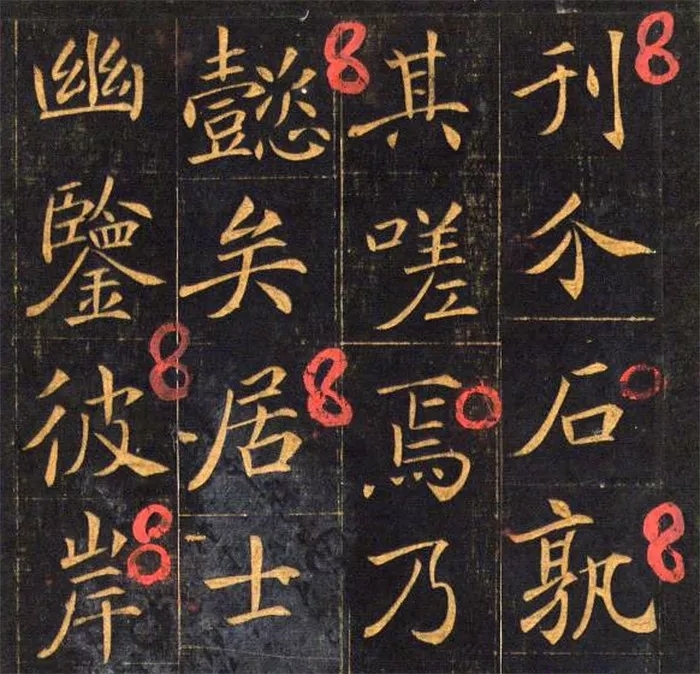 刊介石孰
其嗟焉乃
懿矣居士
幽鑒彼岸